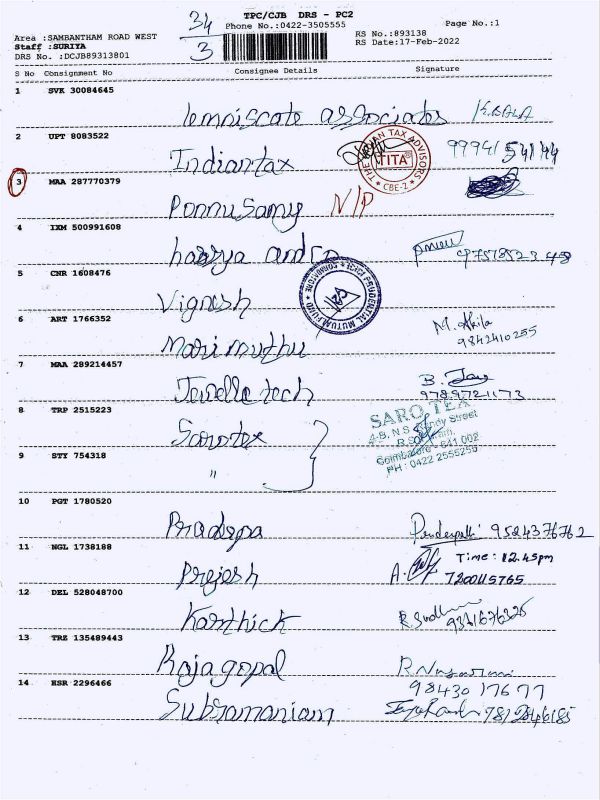 34
3
TPC/CJB DRS - PC2
Phone No.:0422-3505555
Page No.:1
Area :SAMBANTHAM ROAD WEST
Staff :SURIYA
DRS No. :DCJB89313801
RS No.:893138
RS Date:17-Feb-2022
S No Consignment No Consignee Details Signature
1 SVK 30084645
lemniscate associates K.BALA
2 UPT 8083522
Indiantax
TAX ADVISORS
TITA
CBE-2
99941 54144
3 MAA 287770379
Ponnusamy N/P
4 IXM 500991608
5 CNR 1608476
Vignesh
PRUDENTIAL MUTUAL FUND
COIMBATORE
6 ART 1766352
Marimuthu M. Akila
9842410255
7 MAA 289214457
Janelle tech B. Jay
9789721173
8 TRP 2515223
Sarotex
SARO TEX
Street
Coimbatore - 641 002
PH : 0422 2555256
9 STY 754318
"
10 PGT 1780520
Pradeepa 9524376762
11 NGL 1738188
Time: 12.45pm
Prejesh A. 7200115765
12 DEL 528048700
Karthick
13 TRZ 135489443
Rajagopal
98430 17677
14 HSR 2296466
Subramaniam